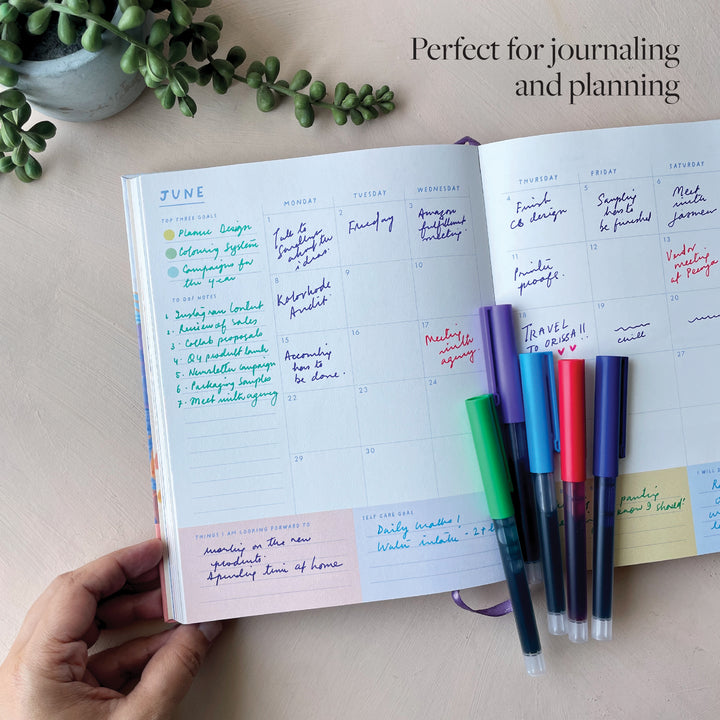 Perfect for journaling
and planning
JUNE
TOP THREE GOALS
Planner Design
Colouring System
Campaigns for
the year
TO DO / NOTES
1. Instagram Content
2. Review of Sales
3. Collab proposals
4. Q4 product bank
5. Newsletter Campaign
6. Packaging Samples
7. Meet with agency
MONDAY
TUESDAY
WEDNESDAY
THURSDAY
FRIDAY
SATURDAY
1
Talk to
Sandhya
about the
ideas.
2
Freeday
3
Amazon
fulfillment
meeting.
4
Finish
CB design
5
Sampling
has to
be finished
6
Meet
with
Jasmeen
8
Kolorkode
Audit.
9
10
11
Printer
proofs.
12
13
Vendor
meeting
at Peenya
15
Accounting
has to
be done.
16
17
Meeting
with
agency.
18
TRAVEL
TO ORISSA!!
19
chill
20
22
23
24
27
29
30
THINGS I AM LOOKING FORWARD TO
working on the new
products.
Spending time at home
SELF CARE GOAL
Daily walks!
Water intake - 2+
know I should!
I WILL